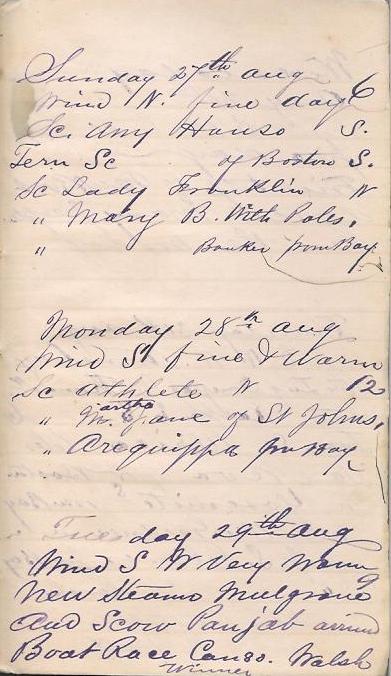 Sunday 27th aug
Wind N. fine day 6
Sc. Amy Hanso S.
Tern Sc of Boston S.
Sc Lady Franklin N
" Mary B. With Poles.
" Banker from Bay
Monday 28th aug
Wind S fine & Warm
Sc athlete N 12
" Martha Jane of St Johns.
" Arequippa from Bay
Tuesday 29th aug
Wind S W Very Warm 9
New Steamo Mulgrave
And Scow Panjab arrived
Boat Race Canso. Walsh
Winner